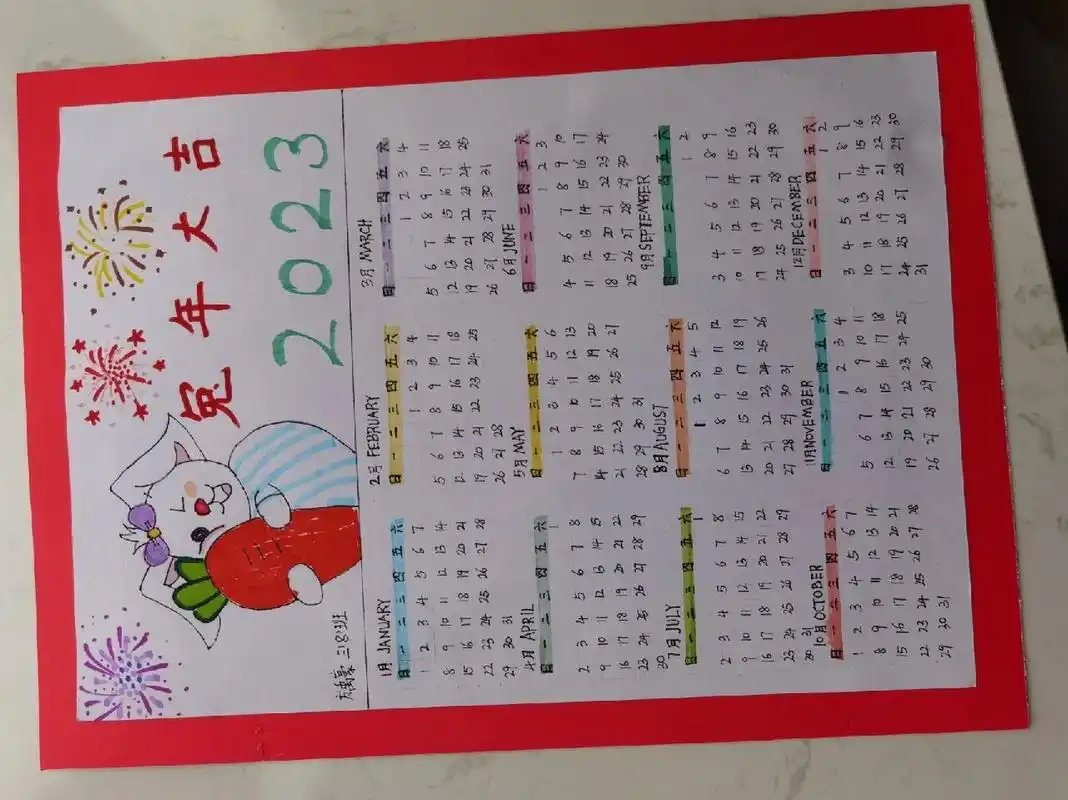 兔年大吉
2023
三(8)班
1月 JANUARY
日 一 二 三 四 五 六
1 2 3 4 5 6 7
8 9 10 11 12 13 14
15 16 17 18 19 20 21
22 23 24 25 26 27 28
29 30 31
2月 FEBRUARY
日 一 二 三 四 五 六
1 2 3 4
5 6 7 8 9 10 11
12 13 14 15 16 17 18
19 20 21 22 23 24 25
26 27 28
3月 MARCH
日 一 二 三 四 五 六
1 2 3 4
5 6 7 8 9 10 11
12 13 14 15 16 17 18
19 20 21 22 23 24 25
26 27 28 29 30 31
4月 APRIL
日 一 二 三 四 五 六
1
2 3 4 5 6 7 8
9 10 11 12 13 14 15
16 17 18 19 20 21 22
23 24 25 26 27 28 29
30
5月 MAY
日 一 二 三 四 五 六
1 2 3 4 5 6
7 8 9 10 11 12 13
14 15 16 17 18 19 20
21 22 23 24 25 26 27
28 29 30 31
6月 JUNE
日 一 二 三 四 五 六
1 2 3
4 5 6 7 8 9 10
11 12 13 14 15 16 17
18 19 20 21 22 23 24
25 26 27 28 29 30
7月 JULY
日 一 二 三 四 五 六
1
2 3 4 5 6 7 8
9 10 11 12 13 14 15
16 17 18 19 20 21 22
23 24 25 26 27 28 29
30 31
8月 AUGUST
日 一 二 三 四 五 六
1 2 3 4 5
6 7 8 9 10 11 12
13 14 15 16 17 18 19
20 21 22 23 24 25 26
27 28 29 30 31
9月 SEPTEMBER
日 一 二 三 四 五 六
1 2
3 4 5 6 7 8 9
10 11 12 13 14 15 16
17 18 19 20 21 22 23
24 25 26 27 28 29 30
10月 OCTOBER
日 一 二 三 四 五 六
1 2 3 4 5 6 7
8 9 10 11 12 13 14
15 16 17 18 19 20 21
22 23 24 25 26 27 28
29 30 31
11月 NOVEMBER
日 一 二 三 四 五 六
1 2 3 4
5 6 7 8 9 10 11
12 13 14 15 16 17 18
19 20 21 22 23 24 25
26 27 28 29 30
12月 DECEMBER
日 一 二 三 四 五 六
1 2
3 4 5 6 7 8 9
10 11 12 13 14 15 16
17 18 19 20 21 22 23
24 25 26 27 28 29 30
31